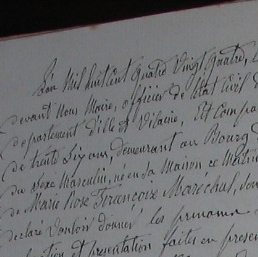 L'an Mil huit Cent Quatre Vingt Quatre, L
devant Nous Maire, officier de l'Etat Civil d
département d'Ille et Vilaine, Est Compa
de trente Six ans, demeurant au Bourg
du sexe Masculin, né en sa Maison ce Matin
de Marie Rose Françoise Maréchal, son
déclaré Vouloir donner les prénoms
et présentation faites en présen